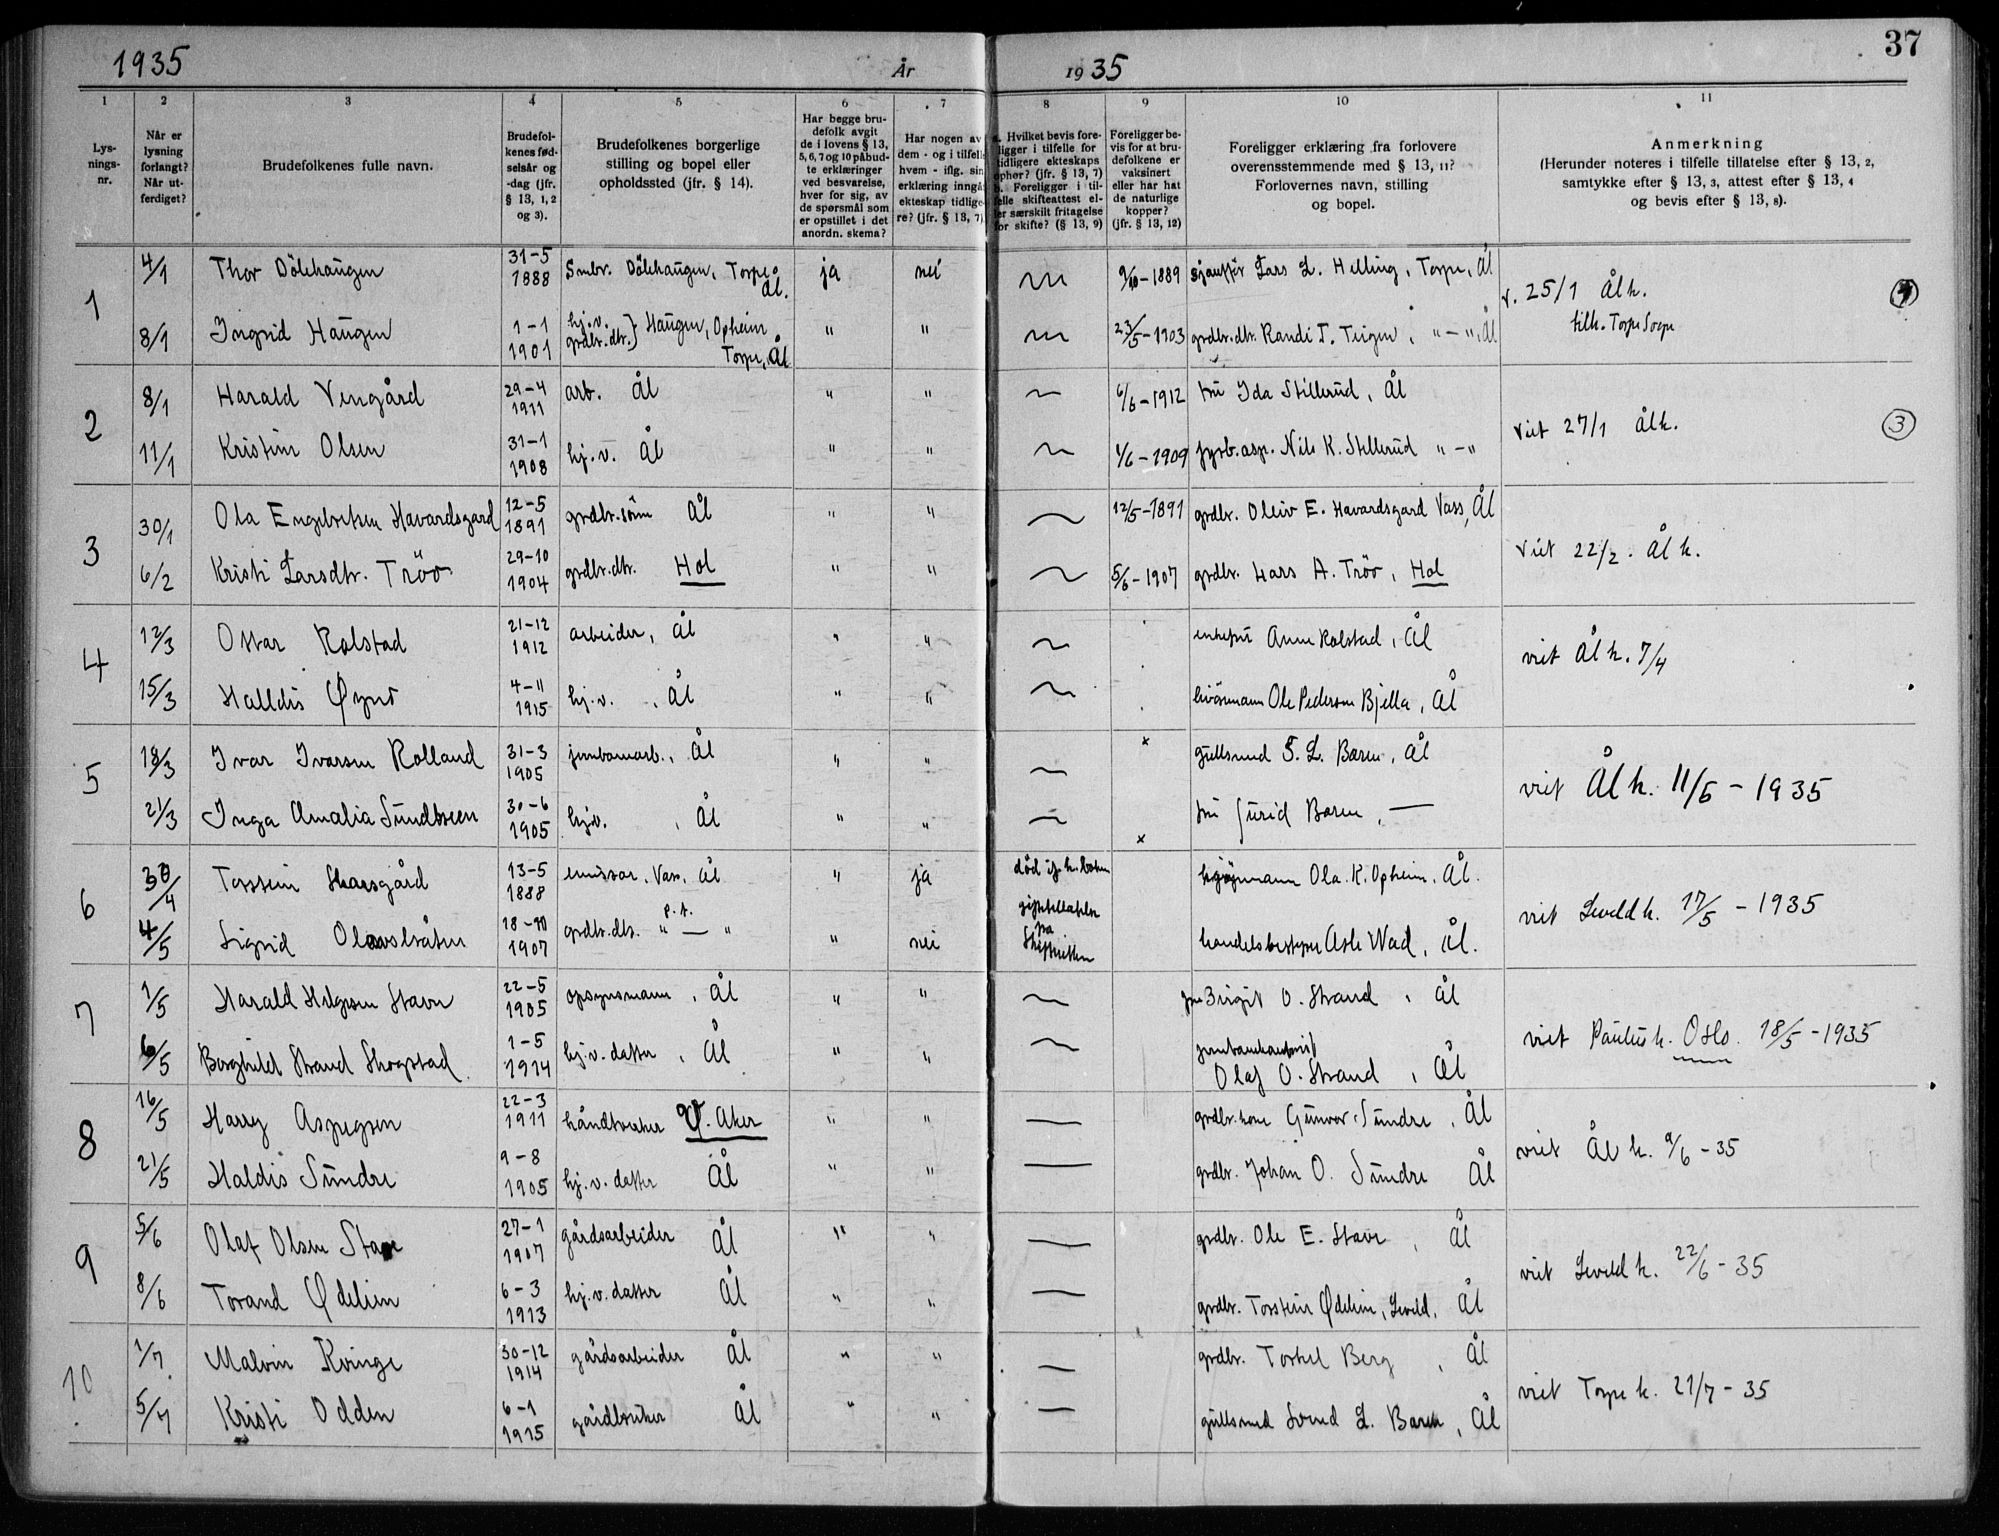 1935 År 1935 37
1 2 3 4 5 6 7 8 9 10 11
Lys-
nings-
nr.
Når er
lysning
forlangt?
Når ut-
ferdiget?
Brudefolkenes fulle navn.
Brudefol-
kenes fød-
selsår og
-dag (jfr.
§ 13, 1, 2
og 3).
Brudefolkenes borgerlige
stilling og bopel eller
opholdssted (jfr. § 14).
Har begge bru-
defolk avgit
de i lovens § 13,
5, 6, 7 og 10 påbud-
te erklæringer
ved besvarelse,
hver for sig, av
de spørsmål som
er opstillet i det
anordn. skema?
Har nogen av
dem - og i tilfelle
hvem - iflg. sin
erklæring inngå
ekteskap tidlige-
re? (jfr. § 13, 7)
a. Hvilket bevis fore-
ligger i tilfelle for
tidligere ekteskaps
ophør? (jfr. § 13, 7)
b. Foreligger i til-
felle skifteattest el-
ler særskilt fritagelse
for skifte? (§ 13, 9)
Foreligger be-
vis for at bru-
defolkene er
vaksinert
eller har hat
de naturlige
kopper?
(jfr. § 13, 12)
Foreligger erklæring fra forlovere
overensstemmende med § 13, 11?
Forlovernes navn, stilling
og bopel.
Anmerkning
(Herunder noteres i tilfelle tillatelse efter § 13, 2,
samtykke efter § 13, 3, attest efter § 13, 4
og bevis efter § 13, 8).
1
4/1 Thor Dölehaugen 31-5 1888 Smbr. Dölehaugen, Torpe, Ål. ja nei 9/10-1889 sjauffør Lars L. Helling, Torpe, Ål
v. 25/1 Ål k.
tilh. Torpe Sogn
8/1 Ingrid Haugen 1-1 1901 hj.v. grdbr.dtr. } Haugen, Opheim Torpe, Ål " " 23/5-1903 grdbr.dtr. Randi T. Teigen, "-", Ål
2
8/1 Harald Vengård 29-4 1911 arb. Ål " " 6/6-1912 fru Ida Stillerud, Ål
viet 27/1 Ål k. 3
11/1 Kristine Olsen 31-1 1908 hj.v. Ål " " 1/6-1909 fyrb.asp. Nils K. Stillerud "-"
3
30/1 Ola Engebretsen Havardsgard 12-5 1891 grdbr.sönn Ål " " 12/5-1891 grdbr. Oleiv E. Havardsgard Vass, Ål
viet 22/2. Ål k.
6/2 Kristi Larsdtr. Tröo 29-10 1904 grdbr.dtr. Hol " " 5/6-1907 grdbr. Lars A. Tröo, Hol
4
12/3 Ottar Rolstad 21-12 1912 arbeider, Ål " " enkefru Anne Rolstad, Ål
viet Ål k. 7/4
15/3 Halldis Øynö 4-11 1915 hj.v., Ål " " Ole Pedersen Bjella, Ål
5
18/3 Ivar Ivarsen Rolland 31-3 1905 jernbanearb., Ål " " x gullsmed S. L. Baren, Ål
viet Ål k. 11/5 - 1935
21/3 Inga Amalia Sundbreen 30-6 1905 hj.v., Ål " " x fru Gurid Baren, —
6
30/4 Torstein Skarsgård 13-5 1888 emissær, Vass, Ål " ja död if. k. boken Ola K. Opheim, Ål.
viet Leveld k. 17/5 - 1935
4/5 Sigrid Olavslråten 18-10 1907 grdbr.dtr. p.t. "—" " nei fra Skifteretten handelsbestyrer Asle Wad, Ål.
7
1/5 Harald Helgesen Stave 22-5 1905 opsynsmann, Ål " " fru Birgit O. Strand, Ål
viet Paulus k. Oslo. 18/5 - 1935
6/5 Borghild Strand Skogstad 1-5 1914 hj.v. datter, Ål " " Olaf O. Strand, Ål
8
16/5 Harry Aspegsen 22-3 1911 håndverker V. Aker " " grdbr.kone Gunvor Sundre, Ål
viet Ål k. 9/6 - 35
21/5 Haldis Sundre 9-8 1905 hj.v. datter Ål " " grdbr. Johan O. Sundre Ål
9
5/6 Olaf Olsen Stave 27-1 1907 gårdsarbeider Ål " " grdbr. Ole E. Stave, Ål
viet Leveld k. 22/6 - 35
8/6 Torand Ødelien 6-3 1913 hj.v. datter Ål " " grdbr. Torstein Ødelien, Leveld, Ål
10
1/7 Malvin Kvinge 30-12 1914 gårdsarbeider Ål " " grdbr. Torkel Berg, Ål
viet Torpe k. 21/7 - 35
5/7 Kristi Odden 6-1 1915 gårdbruker Ål " " gullsmed Svend L. Baren, Ål